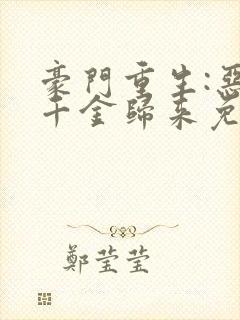 豪門重生:惡
千金歸來兒
鄭瑩瑩